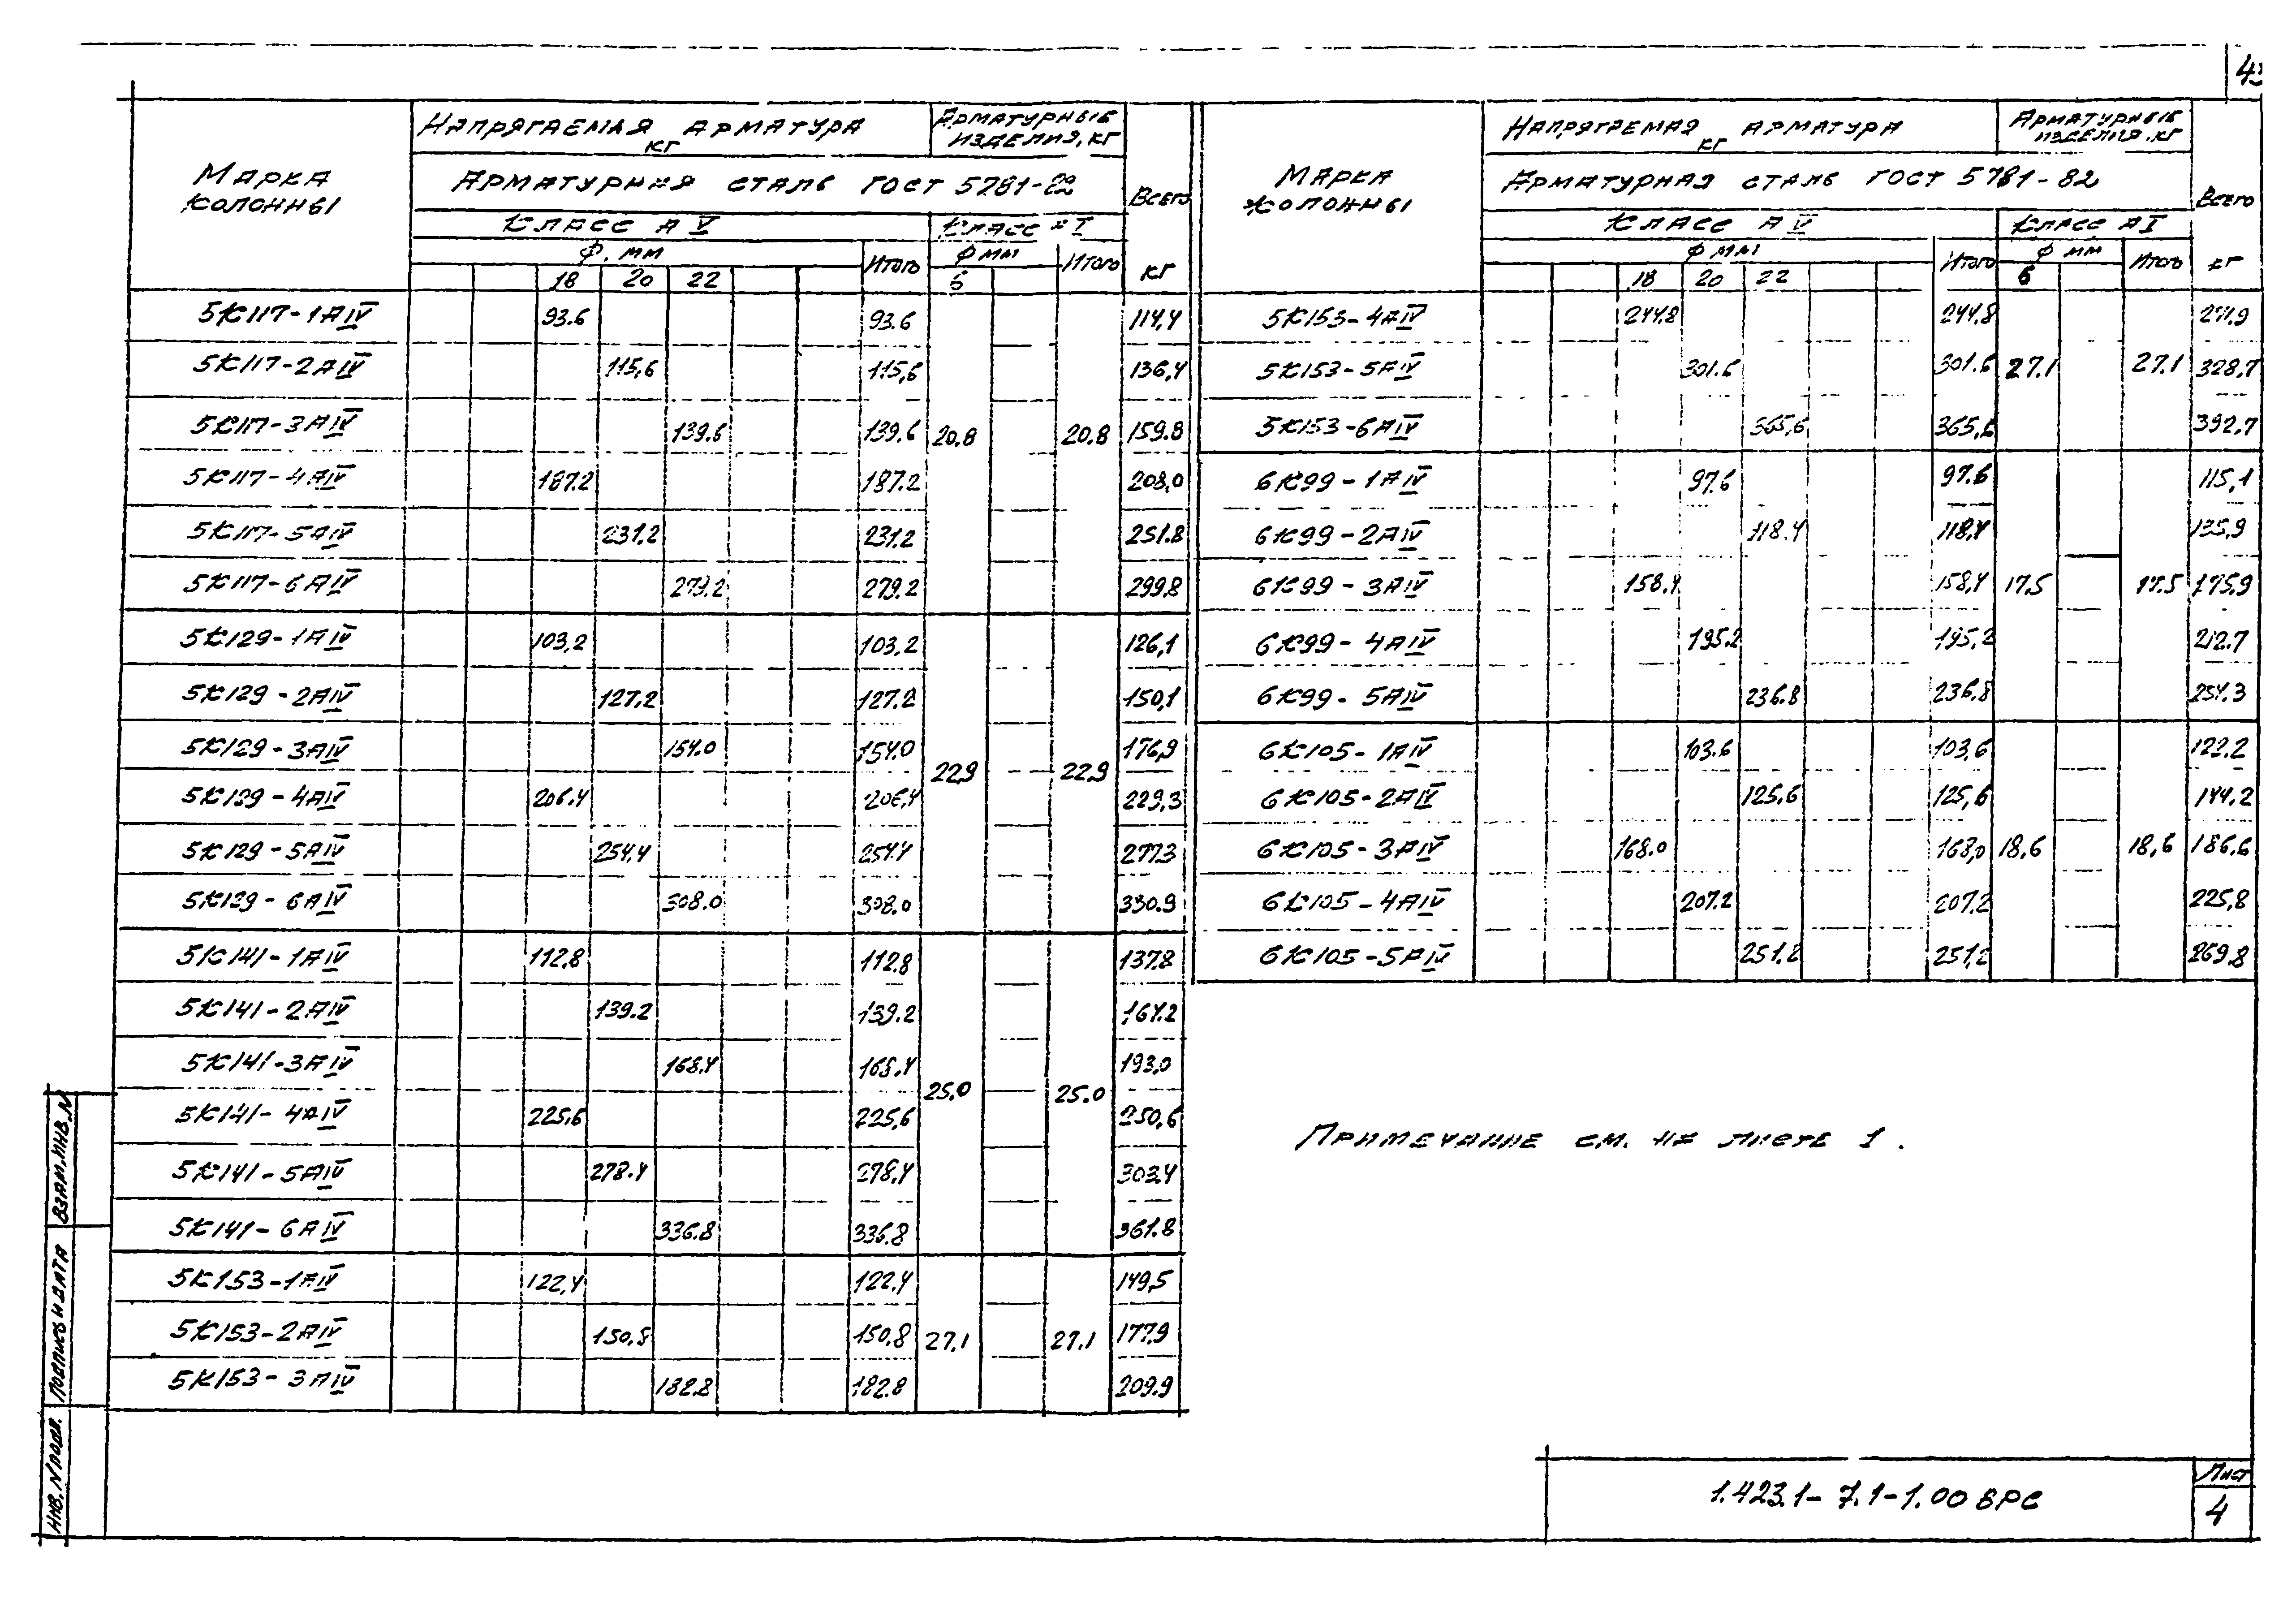 Марка колонны | Напрягаемая арматура кг | Арматурные изделия, кг | Всего кг
Арматурная сталь ГОСТ 5781-82
Класс А V | Класс А I
Ф, мм | Итого | Ф мм | Итого
18 | 20 | 22 | 6
5К117-1АIV 93.6 93.6 114,4
5К117-2АIV 115,6 115,6 136,4
5К117-3АIV 139.6 139.6 20,8 20,8 159.8
5К117-4АIV 187.2 187.2 208,0
5К117-5АIV 231.2 231.2 251.8
5К117-6АIV 279.2 279.2 299,8
5К129-1АIV 103,2 103,2 126,1
5К129-2АIV 127.2 127.2 150,1
5К129-3АIV 154.0 154.0 22,9 22,9 176,9
5К129-4АIV 206.4 206,4 229,3
5К129-5АIV 254,4 254.4 277,3
5К129-6АIV 308.0 308.0 330.9
5К141-1АIV 112,8 112,8 137,8
5К141-2АIV 139.2 139.2 164.2
5К141-3АIV 168.4 168.4 25,0 25.0 193,0
5К141-4АIV 225,6 225,6 250,6
5К141-5АIV 278.4 278,4 303,4
5К141-6АIV 336.8 336.8 361.8
5К153-1АIV 122,4 122.4 149,5
5К153-2АIV 150,8 150,8 27,1 27,1 177,9
5К153-3АIV 182.8 182.8 209.9
Марка колонны | Напрягаемая арматура кг | Арматурные изделия, кг | Всего кг
Арматурная сталь ГОСТ 5781-82
Класс А V | Класс А I
Ф мм | Итого | Ф мм | Итого
18 | 20 | 22 | 6
5К153-4АIV 244.8 244.8 271,9
5К153-5АIV 301.6 301.6 27.1 27.1 328,7
5К153-6АIV 365,6 365,6 392.7
6К99-1АIV 97.6 97.6 115,1
6К99-2АIV 118.4 118,4 135,9
6К99-3АIV 158.4 158,4 17.5 17.5 175,9
6К99-4АIV 195.2 195,2 212.7
6К99-5АIV 236.8 236,8 254.3
6К105-1АIV 103.6 103,6 122.2
6К105-2АIV 125.6 125,6 144,2
6К105-3АIV 168.0 168,0 18.6 18,6 186.6
6К105-4АIV 207.2 207.2 225,8
6К105-5АIV 251.2 251,2 269.8
Примечание см. на листе 1.
1.423.1-7.1-1.00 ВРС
Лист
4
Взам. инв. N
Подпись и дата
Инв. N подл.